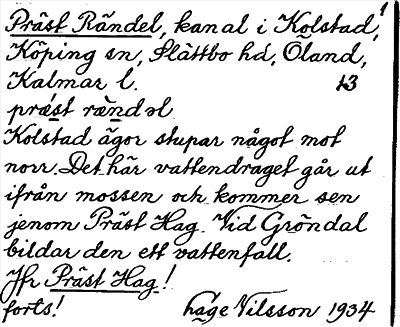 Präst Rändel, kanal i Kolstad, 1
Köping sn, Slättbo hd, Öland,
Kalmar l. 13
præst rændəl
Kolstad ägor stupar något mot
norr. Det här vattendraget går ut
ifrån mossen och kommer sen
jenom Präst Hag. Vid Gröndal
bildar den ett vattenfall.
Jfr Präst Hag!
forts! Håge Nilsson 1934